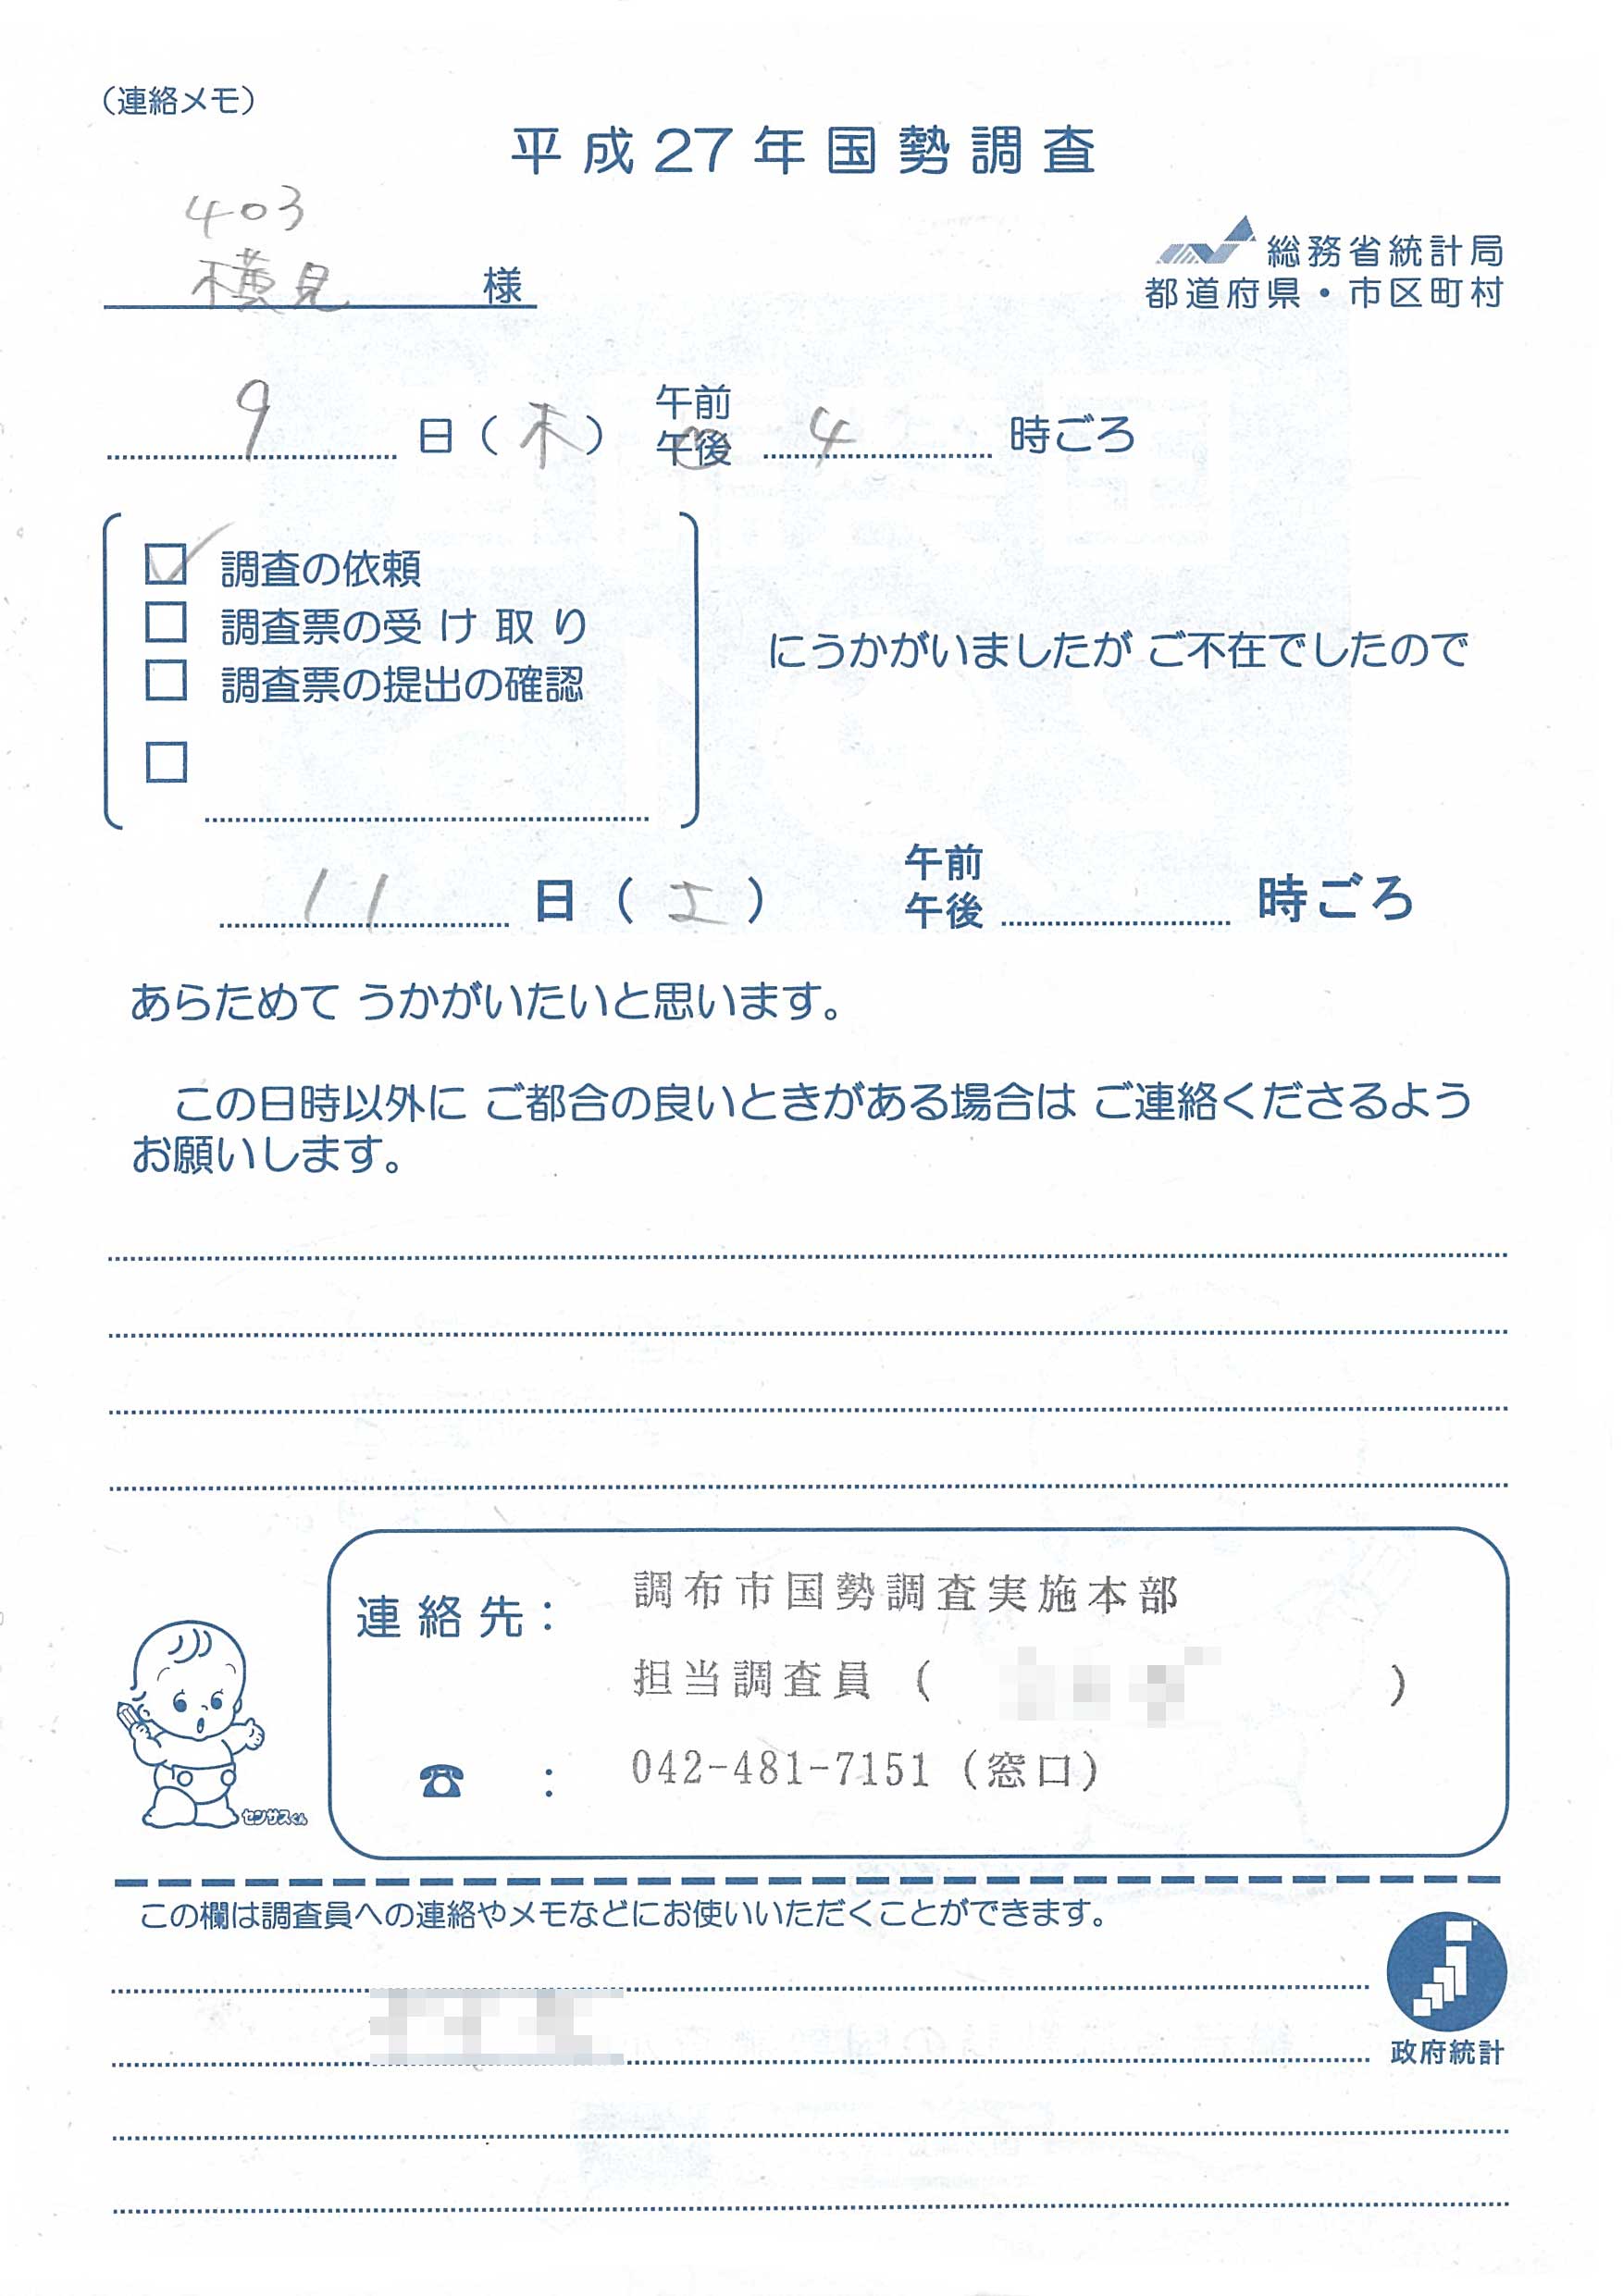 （連絡メモ）
平成27年国勢調査
403
横見 様
総務省統計局
都道府県・市区町村
9日（木） 午前 午後 4時ごろ
調査の依頼
調査票の受け取り
調査票の提出の確認
にうかがいましたが ご不在でしたので
11日（土） 午前 午後 時ごろ
あらためて うかがいたいと思います。
この日時以外に ご都合の良いときがある場合は ご連絡くださるよう
お願いします。
連絡先： 調布市国勢調査実施本部
担当調査員（ ）
☎ : 042-481-7151（窓口）
センサスくん
この欄は調査員への連絡やメモなどにお使いいただくことができます。
政府統計